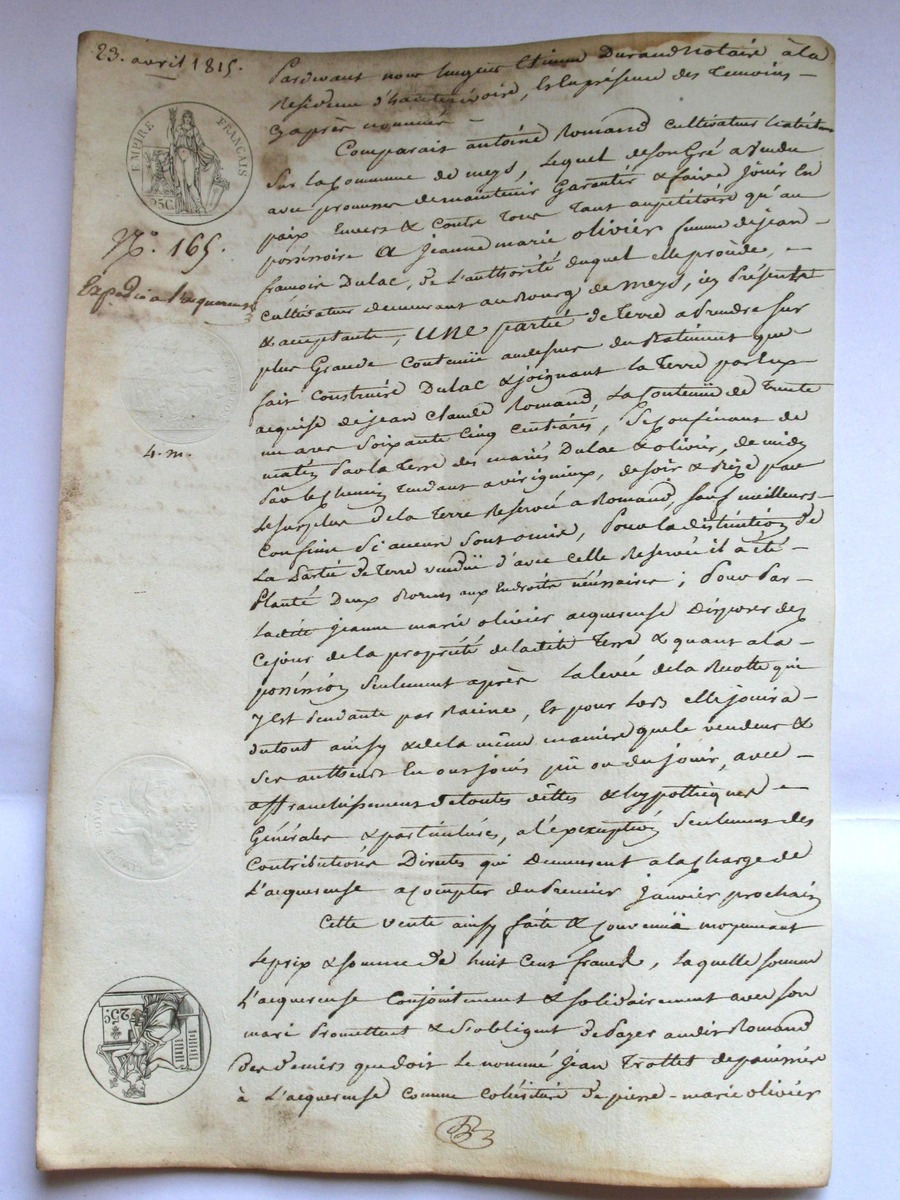 23. avril 1815.
EMPIRE FRANÇAIS
25C
N°. 165.
Expédié a l'aquereuse
4. m.
25C
Pardevant nous Etienne Durand Notaire à la
Residence d'hauterivoire, Et En présence des Temoins
Cy après nommés
Comparait antoine Romand cultivateur habitant
Sur la Commune de meys, Lequel de Son Gré a vendu
avec promesse de maintenir Garantir & faire Jouir En
paix Envers & Contre Tous Tant au pétitoire qu'au
possessoire A Jeanne marie olivier femme de jean
françois Dulac, de L'authorité duquel elle procède,
Cultivateur demeurant au Bourg de meys, icy Présente
& acceptante, UNE partie de Terre a Prendre sur
plus Grande Contenüe au dessus du Batiment que
fait Construire Dulac & joignant la Terre par Eux
acquise de jean Claude Romand, La Contenüe de Trente
un ares Soixante Cinq Centiares, Se Confinant de
matin Par la Terre des mariés Dulac & olivier, de midy
Par le Chemin Tendant a virigneux, de soir & Bize par
Le Surplus de la Terre Reservée a Romand, Sauf meilleurs
Confins Si aucuns Sont omis, Pour la distinction de
La Partie de Terre vendüe d'avec celle Reservée il a été
Planté Deux Bornes aux Endroits nécessaires; Pour Par
Ladite Jeanne marie olivier acquereuse Disposer dez
Ce jour de la propriété de ladite Terre & quant a la
possession Seulement après La levée de la Recolte qui
y Est Pendante par Racine, Et pour Lors elle jouira
du tout ainsy & de la même maniere que le vendeur &
Ses autheurs En ont jouis pû ou dû jouir, avec
affranchissement de toutes dettes & hypothèques
Générales & particulières, a l'exception Seulement des
Contributions Directes qui Demeurent a la charge de
L'acquereuse a Compter du Premier Janvier prochain
Cette vente ainsy faite & Convenüe moyennant
Le prix & Somme de huit Cent francs, Laquelle Somme
L'acquereuse Conjointement & Solidairement avec Son
mari Promettent & S'obligent de Payer audit Romand
Des deniers que doit Le nommé Jean Trollet
à L'acquereuse Comme Cohéritière de pierre-marie olivier